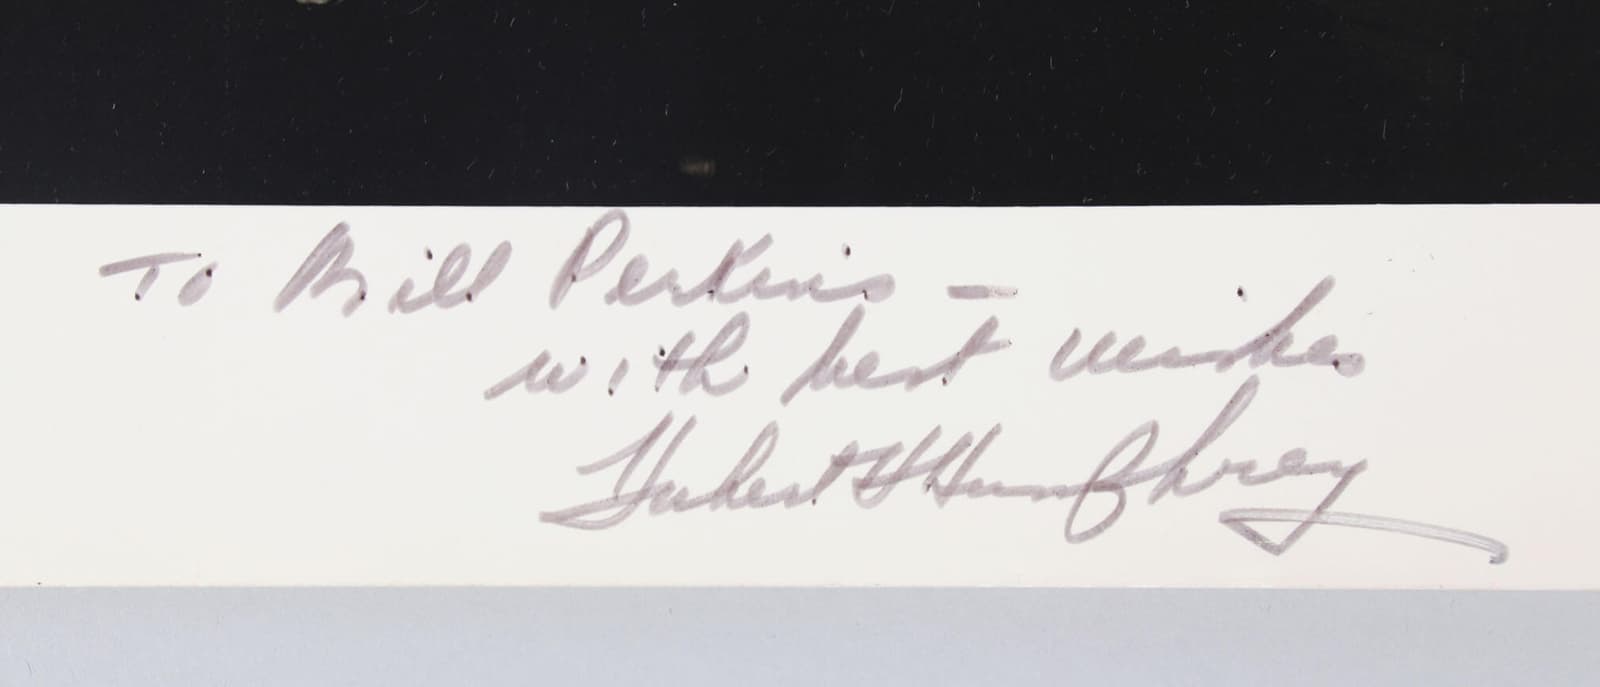 To Bill Perkins -
with best wishes
Hubert H Humphrey